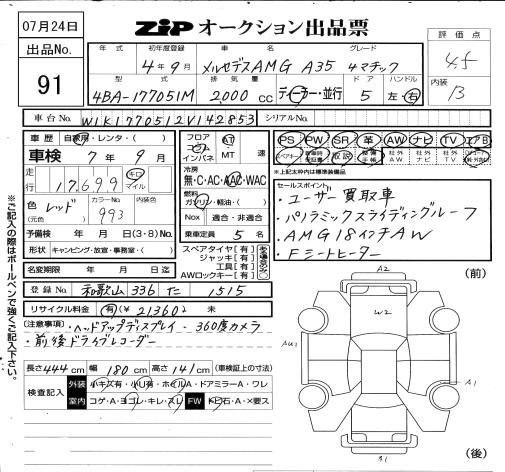 07月24日
ZIP オークション出品票
出品No.
91
評価点
4.5
内装
B
年式 初年度登録 車名 グレード
4年9月 メルセデスAMG A35 4マチック
型式 排気量 ドア ハンドル
4BA-177051M 2,000 cc ディーラー・並行 5 左・右
車台No. W1K1770512V142853 シリアルNo.
車歴 自家用・レンタ・( )
車検 7年9月
走行 17,699 キロ マイル
色(元色) レッド カラーNo. 993
予備検 年 月 日(3・8)No.
形状 キャンピング・放宣・事務室・( )
名変期限 年 月 日迄
フロア コラム インパネ AT MT 速
冷房 無・C・AC・AAC・WAC
燃料 ガソリン・軽油・( )
Nox 適合・非適合
乗車定員 5 名
スペアタイヤ[有]
ジャッキ[有]
工具[有]
AWロックキー[有]
PS PW SR 革 AW ナビ TV エアB
取説 社外AW 社外ナビ 社外TV
*上記太枠内は標準装備品
セールスポイント
・ユーザー買取車
・パノラミックスライディングルーフ
・AMG18インチAW
・Fシートヒーター
登録No. 和歌山 336 た 1515
リサイクル料金 (有)(¥ 21360) 未
(注意事項)・ヘッドアップディスプレイ・360度カメラ
・前後ドライブレコーダー
長さ 444 cm 幅 180 cm 高さ 141 cm (車検証上の寸法)
検査記入 外装 小キズ有・小U有・ホイルA・ドアミラーA・ワレ
内装 コゲ・A・ヨゴレ・キレ・スレ FW トビ石・A・X要ス
※ご記入の際はボールペンで強くご記入下さい。
(前)
A2
W2
AU1
A1
B1
(後)